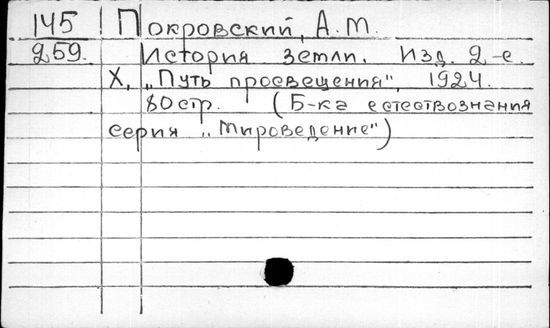 145 Покровский, А.М.
259. История земли. Изд. 2-е.
Х, „Путь просвещения", 1924.
80стр. (Б-ка естествознания
серия „Мироведение")